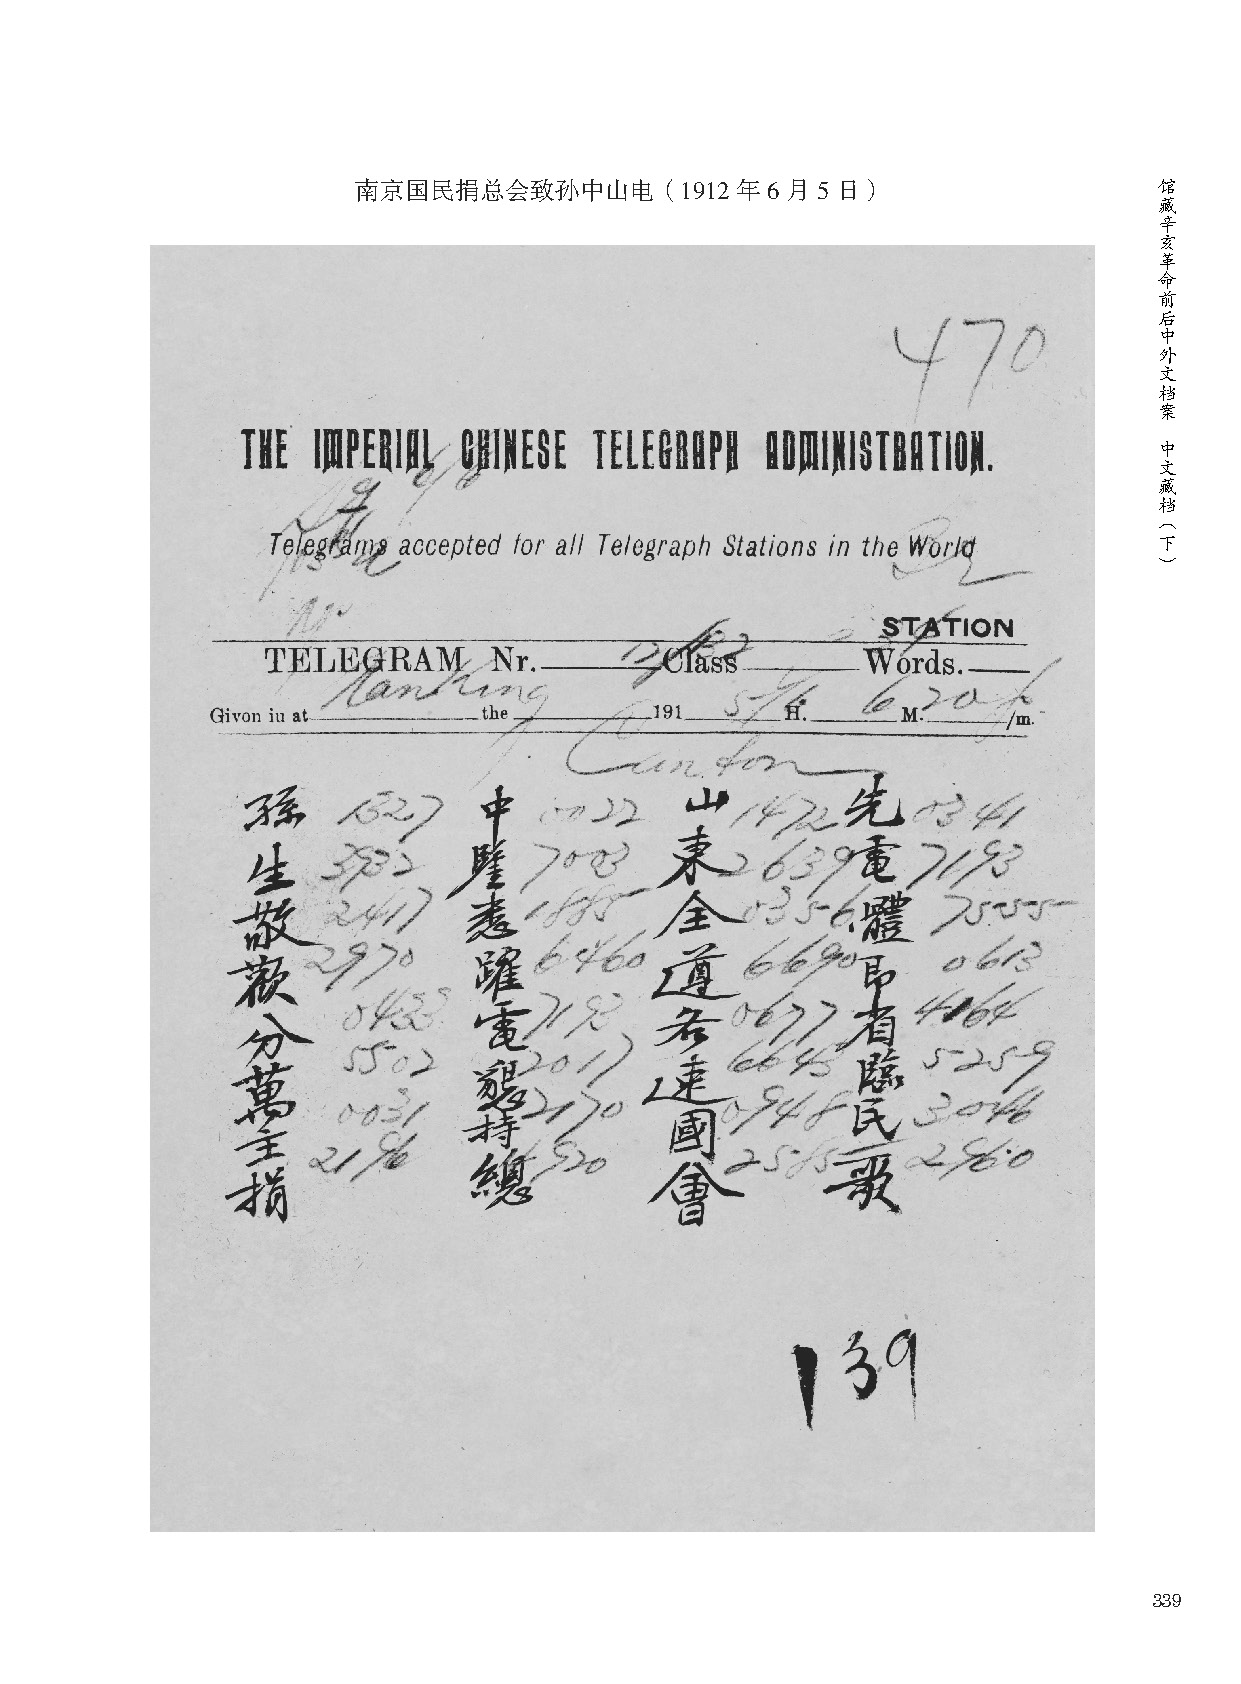 南京国民捐总会致孙中山电（1912 年 6 月 5 日）
馆藏辛亥革命前后中外文档案 中文藏档（下）
470
THE IMPERIAL CHINESE TELEGRAPH ADMINISTRATION.
Telegrams accepted for all Telegraph Stations in the World
STATION
TELEGRAM Nr. Class Words.
Nanking 5/6 620
Givon iu at the 191 H. M. /m.
Canton
孫 1327 中 0022 山 1472 先 0341
生 3932 鑒 7003 東 2639 電 7193
敬 2417 悉 1885 全 0356 體 7555
歡 2970 躍 6460 遵 6690 即 0613
分 0433 電 7193 各 0677 省 4164
萬 5502 懇 2017 速 6643 臨 5259
主 0031 持 2170 國 0948 民 3046
捐 2196 總 4920 會 2585 歌 2960
139
339